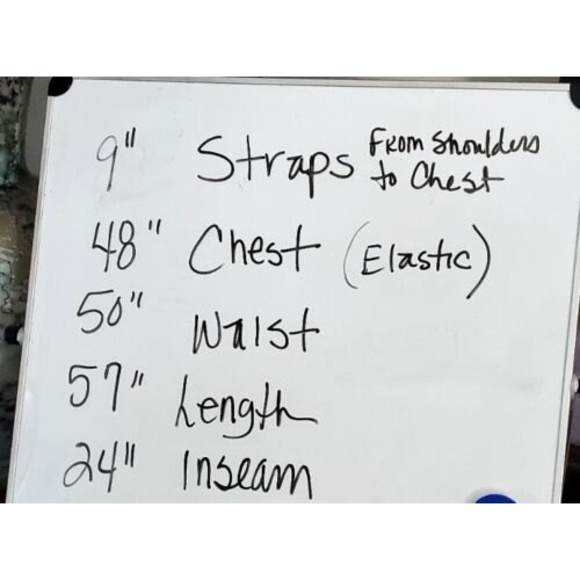 9" Straps From Shoulders
to Chest
48" Chest (Elastic)
50" Waist
57" Length
24" Inseam